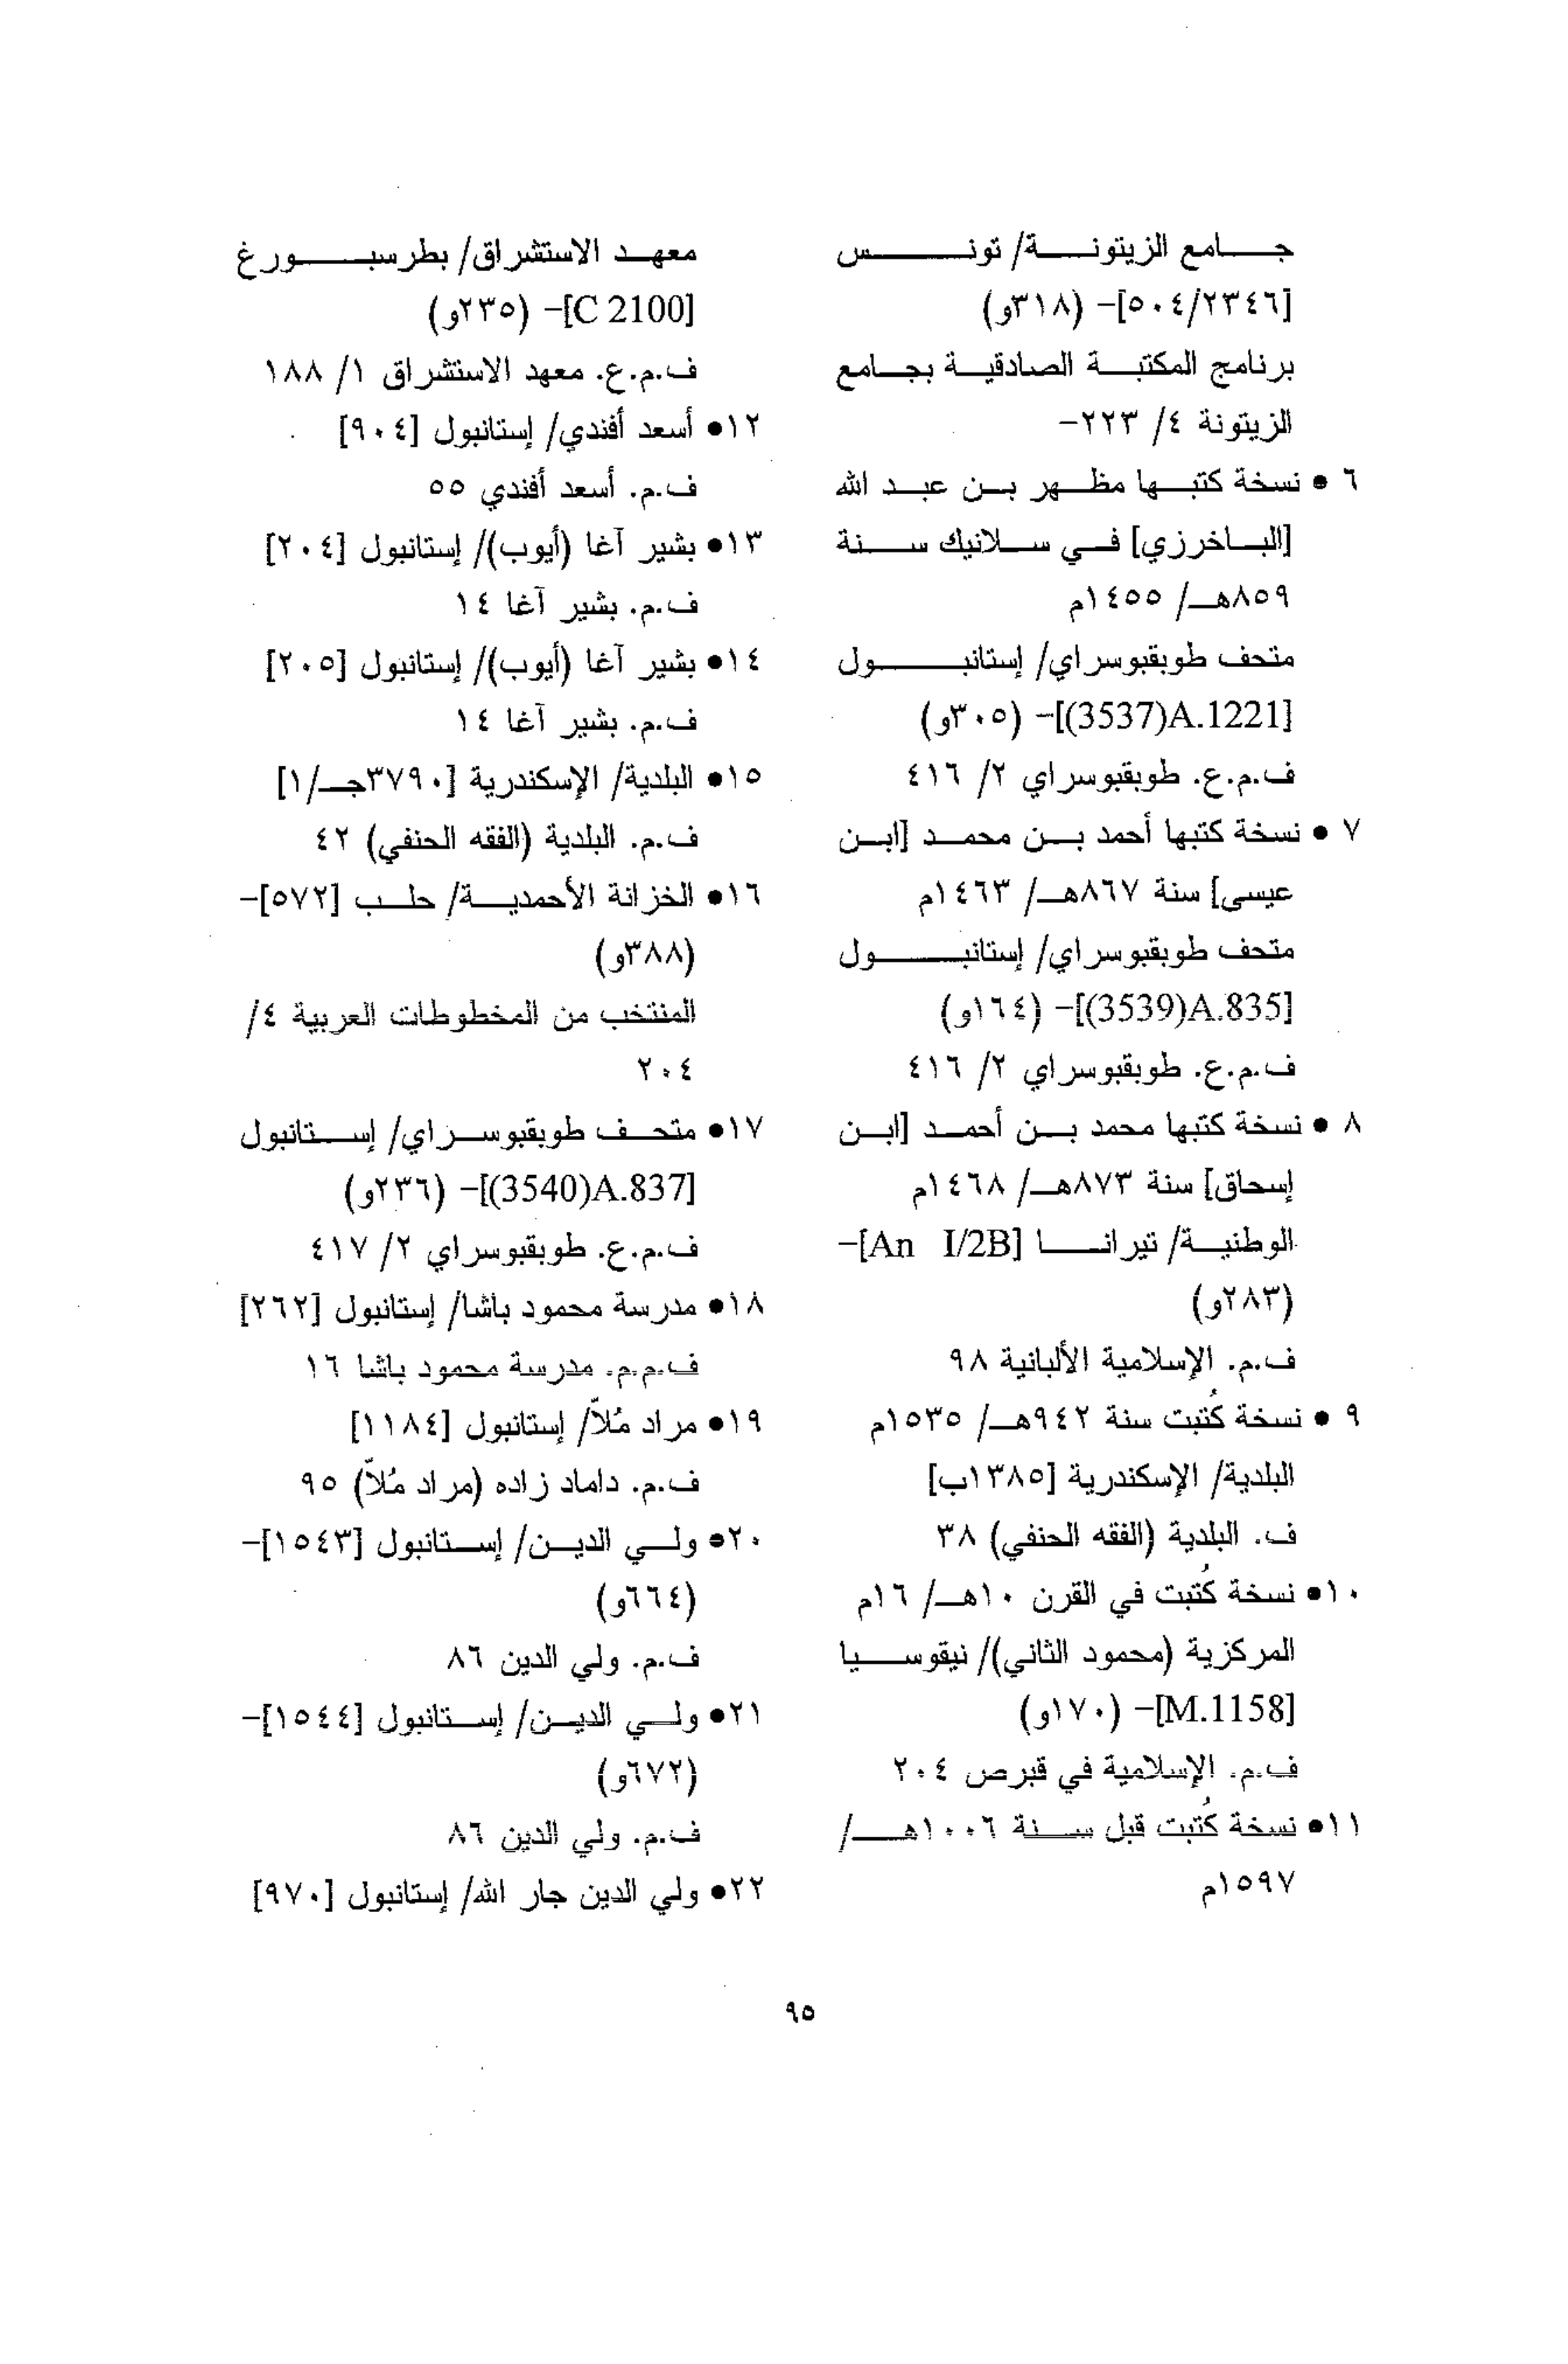 جامع الزيتونة/ تونس
[٥٠٤/٢٣٤٦]- (٣١٨و)
برنامج المكتبة الصادقية بجامع
الزيتونة ٤/ ٢٢٣-
٦ • نسخة كتبها مظهر بن عبد الله
[الباخرزي] في سلانيك سنة
٨٥٩هـ/ ١٤٥٥م
متحف طوبقبوسراي/ إستانبول
[A.1221(3537)]- (٣٠٥و)
ف.م.ع. طوبقبوسراي ٢/ ٤١٦
٧ • نسخة كتبها أحمد بن محمد [ابن
عيسى] سنة ٨٦٧هـ/ ١٤٦٣م
متحف طوبقبوسراي/ إستانبول
[A.835(3539)]- (١٦٤و)
ف.م.ع. طوبقبوسراي ٢/ ٤١٦
٨ • نسخة كتبها محمد بن أحمد [ابن
إسحاق] سنة ٨٧٣هـ/ ١٤٦٨م
الوطنية/ تيرانا [An I/2B]-
(٢٨٣و)
ف.م. الإسلامية الألبانية ٩٨
٩ • نسخة كُتبت سنة ٩٤٢هـ/ ١٥٣٥م
البلدية/ الإسكندرية [١٣٨٥ب]
ف. البلدية (الفقه الحنفي) ٣٨
١٠• نسخة كُتبت في القرن ١٠هـ/ ١٦م
المركزية (محمود الثاني)/ نيقوسيا
[M.1158]- (١٧٠و)
ف.م. الإسلامية في قبرص ٢٠٤
١١• نسخة كُتبت قبل سنة ١٠٠٦هـ/
١٥٩٧م
معهد الاستشراق/ بطرسبورغ
[C 2100]- (٢٣٥و)
ف.م.ع. معهد الاستشراق ١/ ١٨٨
١٢• أسعد أفندي/ إستانبول [٩٠٤]
ف.م. أسعد أفندي ٥٥
١٣• بشير آغا (أيوب)/ إستانبول [٢٠٤]
ف.م. بشير آغا ١٤
١٤• بشير آغا (أيوب)/ إستانبول [٢٠٥]
ف.م. بشير آغا ١٤
١٥• البلدية/ الإسكندرية [٣٧٩٠جـ/١]
ف.م. البلدية (الفقه الحنفي) ٤٢
١٦• الخزانة الأحمدية/ حلب [٥٧٢]-
(٣٨٨و)
المنتخب من المخطوطات العربية ٤/
٢٠٤
١٧• متحف طوبقبوسراي/ إستانبول
[A.837(3540)]- (٢٣٦و)
ف.م.ع. طوبقبوسراي ٢/ ٤١٧
١٨• مدرسة محمود باشا/ إستانبول [٢٦٢]
ف.م.م. مدرسة محمود باشا ١٦
١٩• مراد مُلاّ/ إستانبول [١١٨٤]
ف.م. داماد زاده (مراد مُلاّ) ٩٥
٢٠• ولي الدين/ إستانبول [١٥٤٣]-
(٦٦٤و)
ف.م. ولي الدين ٨٦
٢١• ولي الدين/ إستانبول [١٥٤٤]-
(٦٧٢و)
ف.م. ولي الدين ٨٦
٢٢• ولي الدين جار الله/ إستانبول [٩٧٠]
٩٥